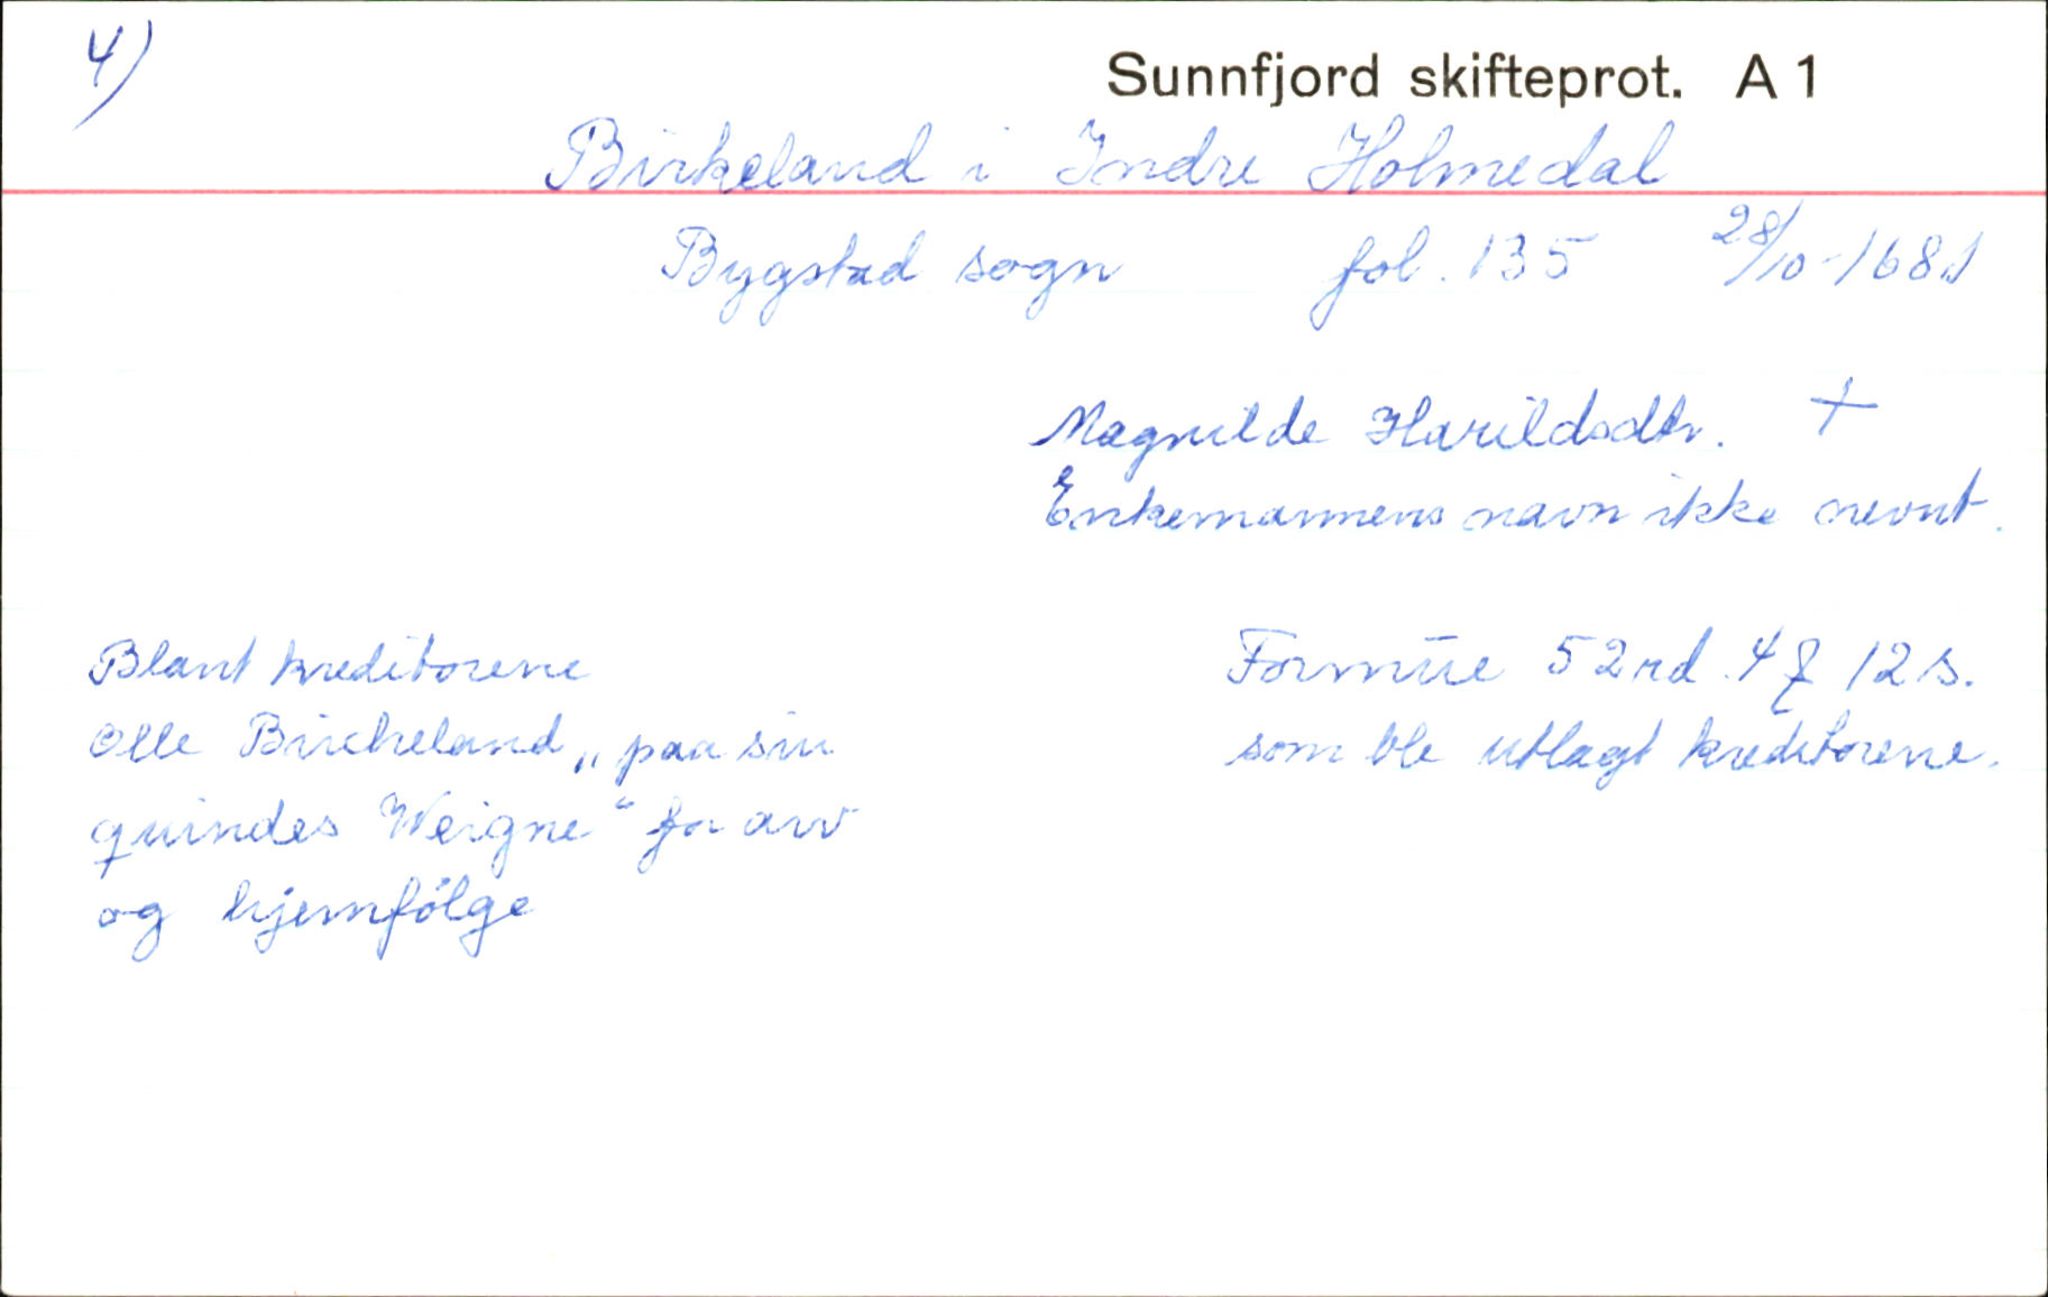 4)
Sunnfjord skifteprot. A 1
Birkeland i Indre Holmedal
Bygstad sogn fol. 135 28/10-1681
Magnilde Harildsdtr. +
Enkemannens navn ikke nevnt.
Formue 52 rd. 4 12 s.
som ble utlagt kreditorene.
Blant kreditorene
Olle Bircheland „paa sin
quindes Weigne“ for arv
og hjemfölge